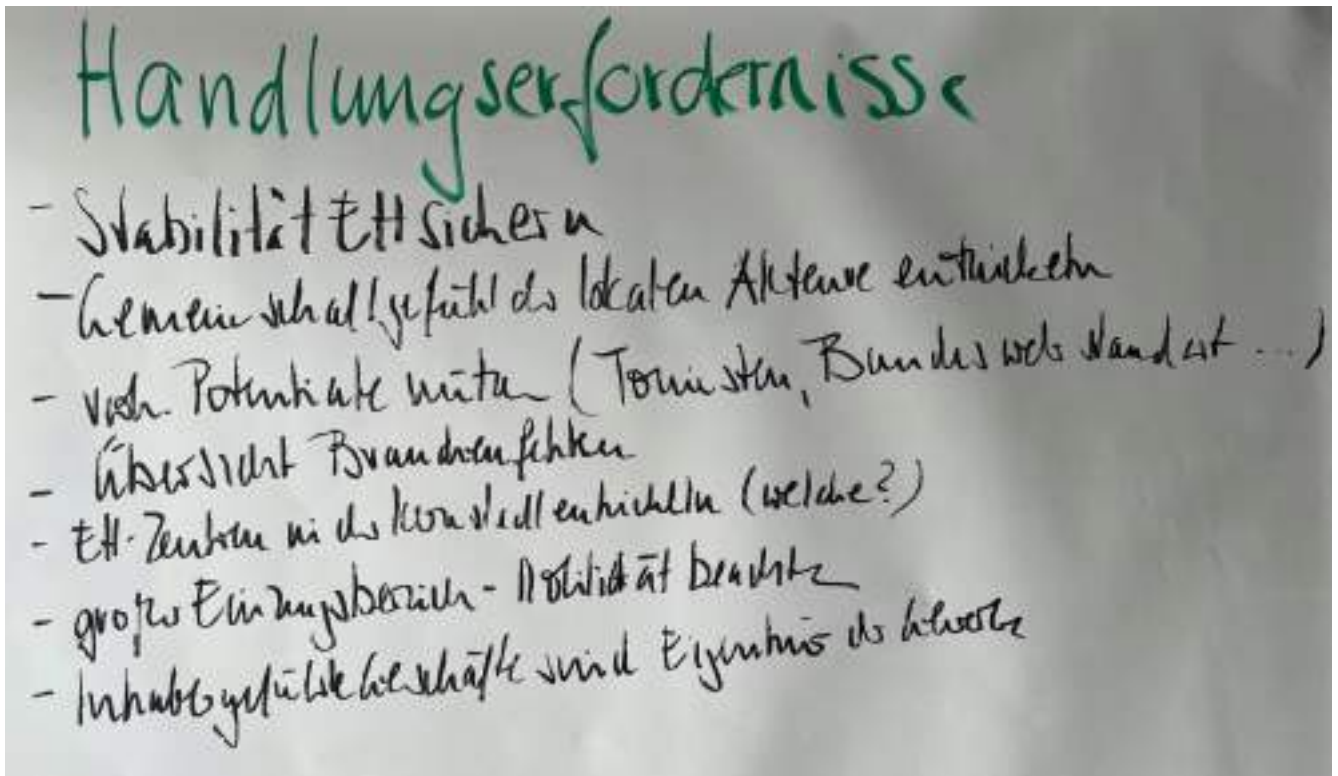 Handlungserfordernisse
- Stabilität EH sichern
- Gemeinschaftsgefühl der lokalen Akteure entwickeln
- vorh. Potentiale nutzen (Touristen, Bundeswehrstandort ...)
- Übersicht Branchen fehlen
- EH-Zentren in der Kernstadt entwickeln (welche?)
- großer Einzugsbereich - Mobilität beachten
- Inhabergeführte Geschäfte sind Eigentümer der Gewerbe